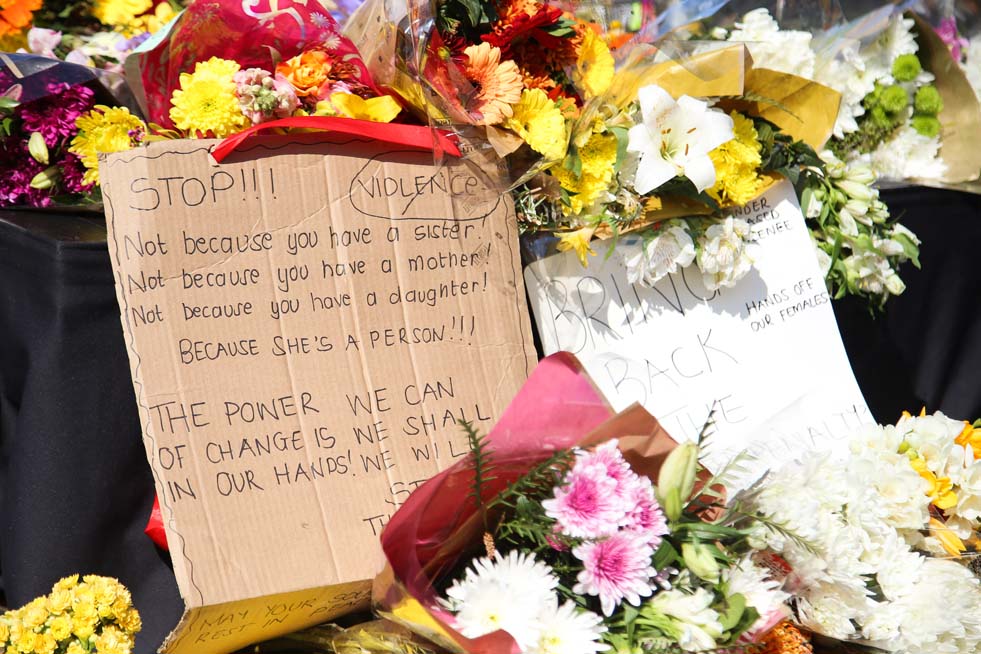 STOP!!! VIOLENCE
Not because you have a sister!
Not because you have a mother!
Not because you have a daughter!
BECAUSE SHE'S A PERSON!!!
THE POWER WE CAN
OF CHANGE IS WE SHALL
IN OUR HANDS! WE WILL
MAY YOUR
REST IN
BRING
BACK
THE
HANDS OFF
OUR FEMALES